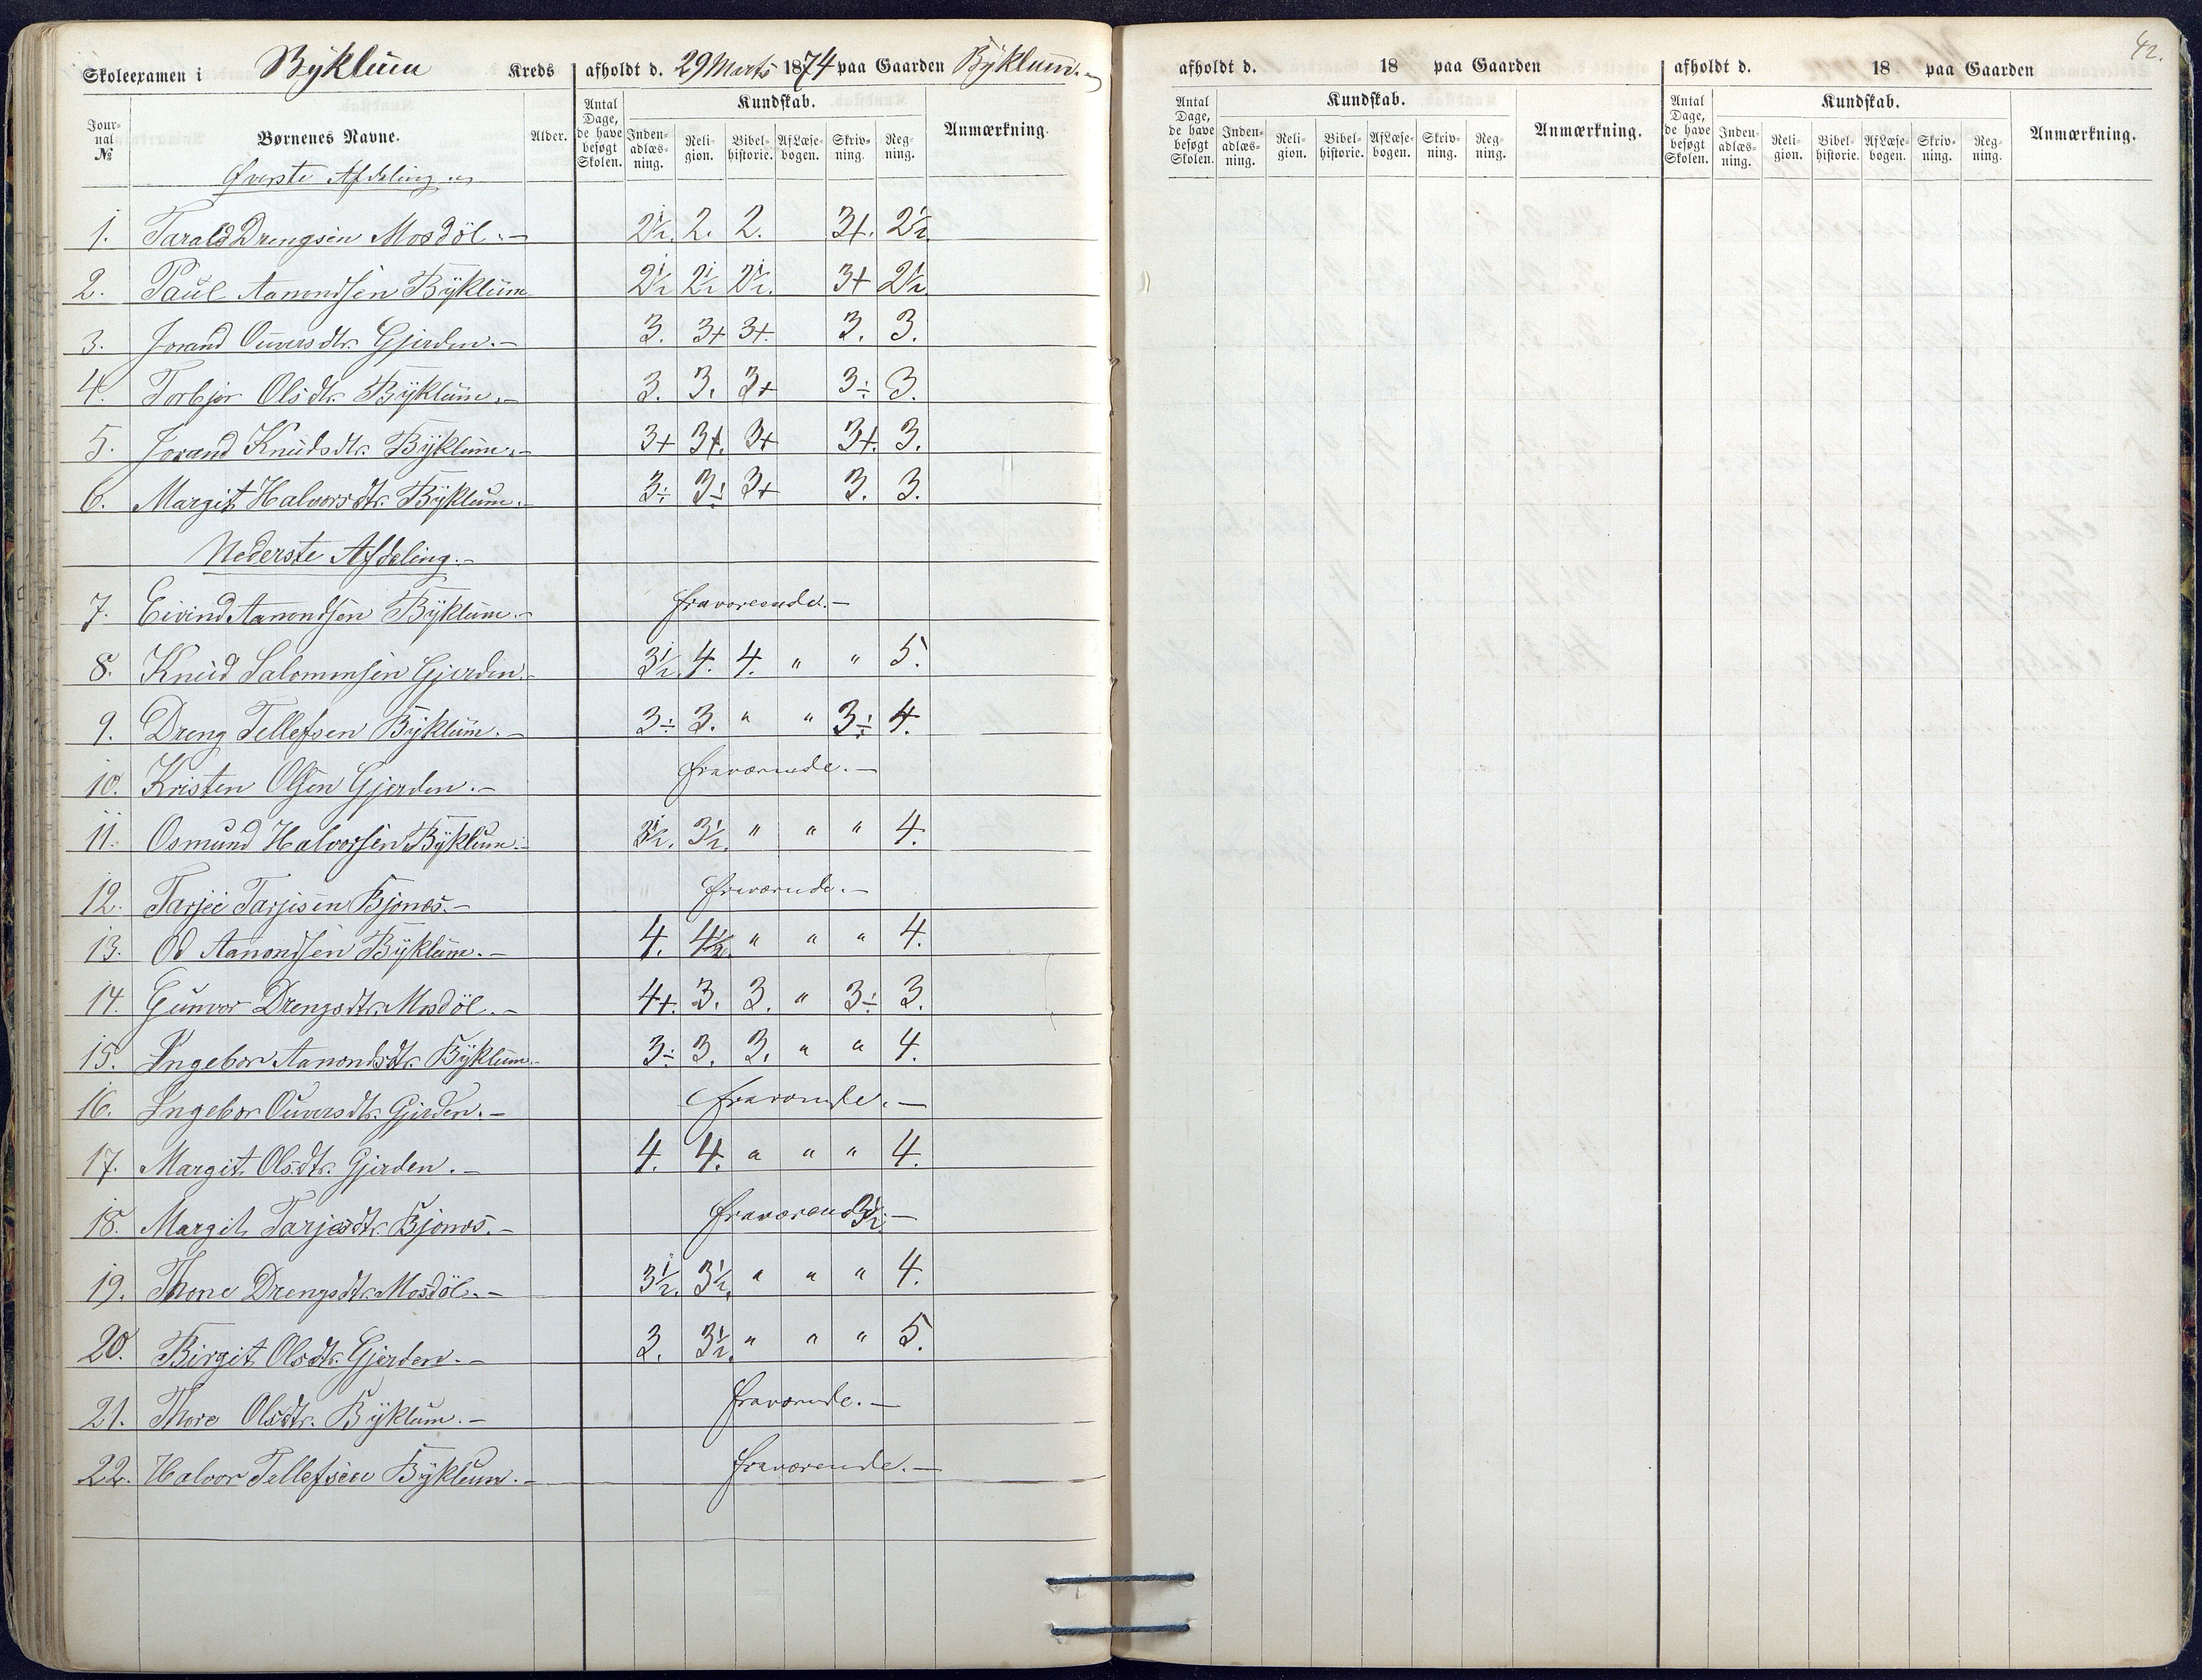 Skoleexamen i Byklum Kreds afholdt d. 29 Marts 1874 paa Gaarden Byklum.
Jour-nal № Børnenes Navne. Alder. Antal Dage, de have besøgt Skolen. Kundskab. Inden-adlæs-ning. Reli-gion. Bibel-historie. Af Læse-bogen. Skriv-ning. Reg-ning. Anmærkning.
Øverste Afdeling.
1. Tarald Drengsen Mosdöl.- 2½. 2. 2. 3+. 2½.
2. Paul Aanondsen Byklum 2½ 2½ 2½. 3+ 2½.
3. Jorand Ouversdtr. Gjerden.- 3. 3+ 3+. 3. 3.
4. Torbjør Olsdtr. Byklum.- 3. 3. 3+ 3÷ 3.
5. Jorand Knudsdtr. Byklum.- 3+ 3+. 3+ 3+. 3.
6. Margit Halvorsdtr. Byklum.- 3÷ 3÷ 3+ 3. 3.
Nederste Afdeling.-
7. Eivind Aanondsen Byklum.- fraværende.-
8. Knud Salomonsen Gjerden.- 3½. 4. 4. " " 5.
9. Dreng Tellefsen Byklum.- 3÷ 3. " " 3÷ 4.
10. Kristen Olsen Gjerden.- fraværende.-
11. Osmund Halvorsen Byklum.- 3½. 3½. " " " 4.
12. Tarjei Tarjeisen Bjones.- fraværende.-
13. Od Aanondsen Byklum.- 4. 4½. " " " 4.
14. Gunvor Drengsdtr. Mosdöl.- 4+. 3. 3. " 3÷ 3.
15. Ingebor Aanondsdtr. Byklum.- 3÷ 3. 3. " " 4.
16. Ingebor Ouversdtr. Gjerden.- fraværende.-
17. Margit Olsdtr. Gjerden.- 4. 4. " " " 4.
18. Margit Tarjesdtr. Bjones.- fraværende.-
19. Thone Drengsdtr. Mosdöl.- 3½. 3½. " " " 4.
20. Birgit Olsdtr. Gjerden.- 3. 3½. " " " 5.
21. Thore Olsdtr. Byklum.- fraværende.-
22. Halvor Tellefsen Byklum.- fraværende.-
42.
afholdt d. 18 paa Gaarden
Antal Dage, de have besøgt Skolen. Kundskab. Inden-adlæs-ning. Reli-gion. Bibel-historie. Af Læse-bogen. Skriv-ning. Reg-ning. Anmærkning.
afholdt d. 18 paa Gaarden
Antal Dage, de have besøgt Skolen. Kundskab. Inden-adlæs-ning. Reli-gion. Bibel-historie. Af Læse-bogen. Skriv-ning. Reg-ning. Anmærkning.